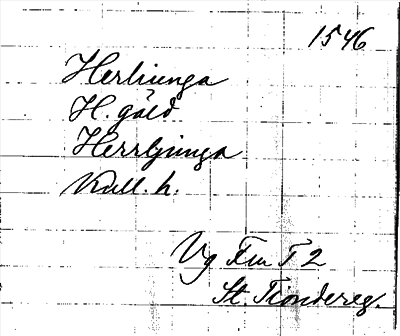 1546
Herliunga
H. gäld.
Herrljunga
Kull. h.
Vg Fru T 2
St. Tiondereg.